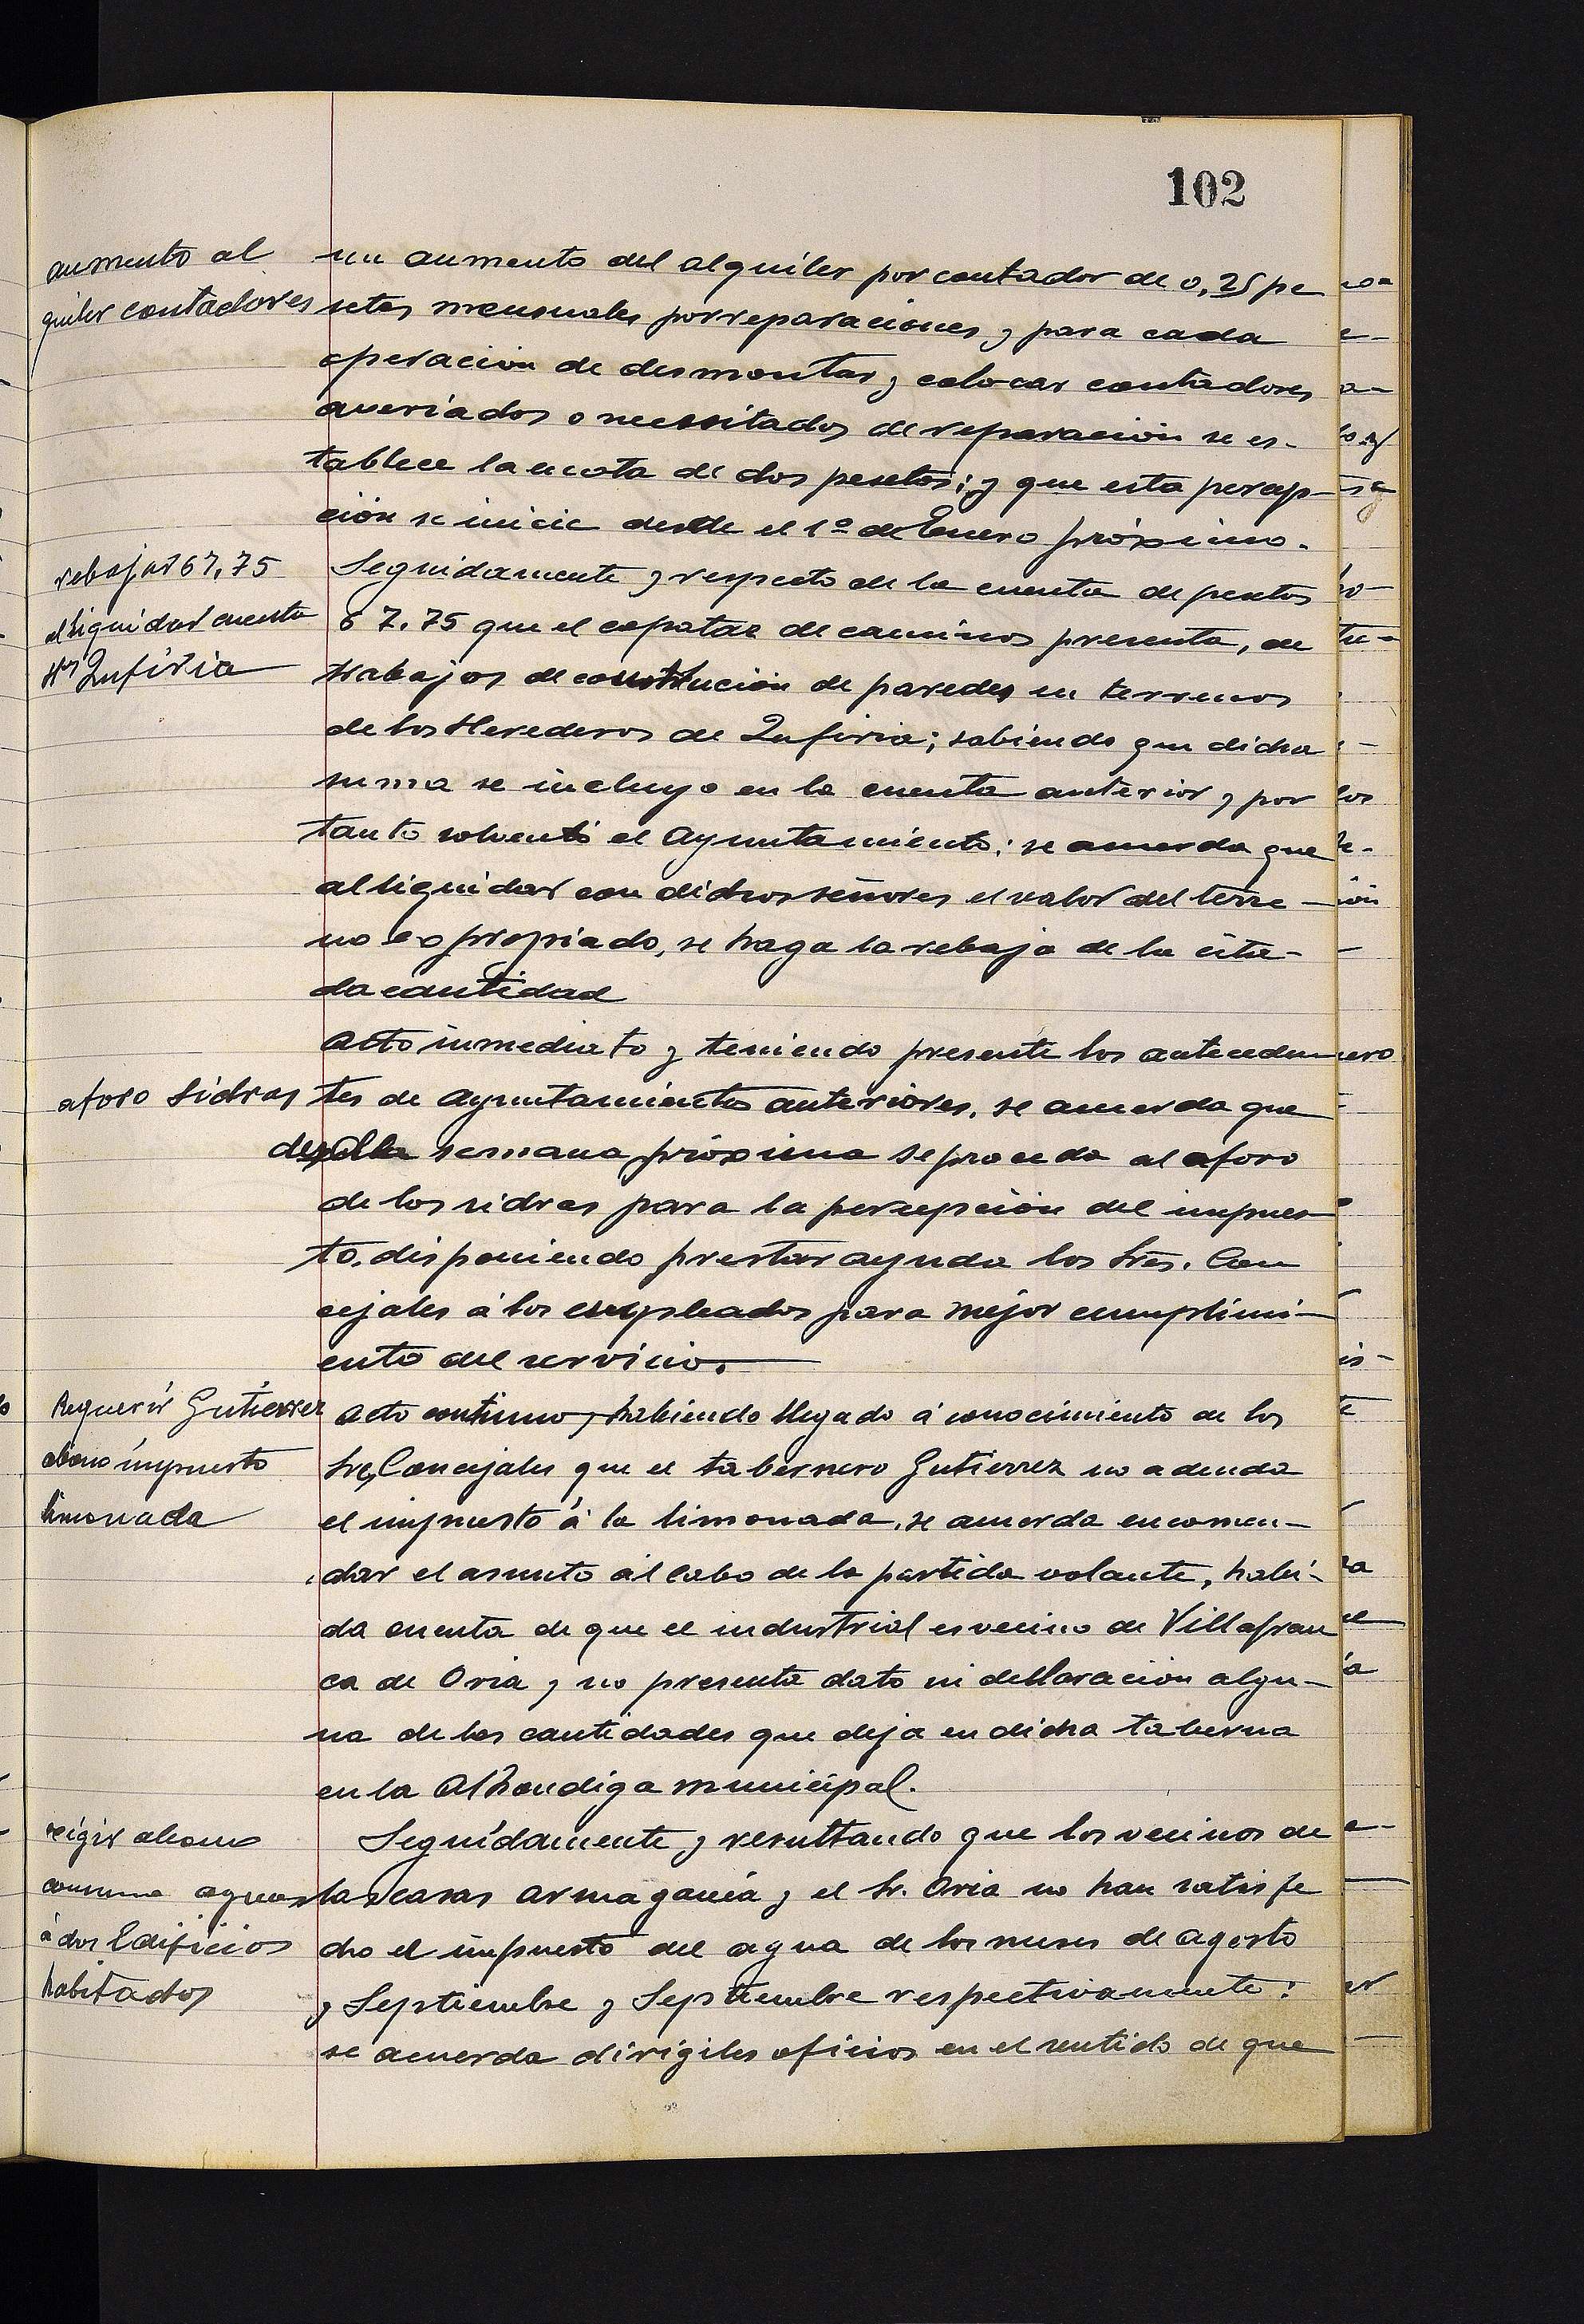 102
aumento al
quiler contadores
un aumento del alquiler por contador de 0,25 pe
setas mensuales por reparaciones y para cada
operación de desmontar y colocar contadores
averiados o necesitados de reparación se es-
tablece la cuota de dos pesetas; y que esta percep-
ción se inicie desde el 1º de Enero próximo.
rebajar 67,75
al liquidar cuenta
Hros Zufiria
Seguidamente y respecto de la cuenta de pesetas
67.75 que el capataz de caminos presenta, de
trabajos de construcion de paredes en terrenos
de los Herederos de Zufiria; sabiendo que dicha
suma se incluyo en la cuenta anterior y por
tanto solventó el Ayuntamiento; se acuerda que
al liquidar con dichos señores el valor del terre-
no expropiado, se haga la rebaja de la cita-
da cantidad
aforo sidras
Acto inmediato y teniendo presente los anteceden
tes de Ayuntamientos anteriores, se acuerda que
desde la semana próxima se proceda al aforo
de las sidras para la percepción del impues
to, disponiendo prestar ayuda los Sres. Con
cejales á los empleados para mejor cumplimi-
ento del servicio.
Requerir Gutierrez
abono impuesto
limonada
Acto continuo y habiendo llegado á conocimiento de los
Sres Concejales que el tabernero Gutierrez no adenda
el impuesto á la limonada, se acuerda encomen-
dar el asunto al Cabo de la partida volante, habi-
da cuenta de que el industrial es vecino de Villafran
ca de Oria y no presenta dato ni declaración algu-
na de las cantidades que deja en dicha taberna
en la Alhondiga municipal.
exigir abono
consumo aguas
á dos Edificios
habitados
Seguidamente y resultando que los vecinos de
las casas Armagania y el Sr. Oria no han satisfe
cho el impuesto del agua de los meses de Agosto
y Septiembre y Septiembre respectivamente:
se acuerda dirigiles oficios en el sentido de que